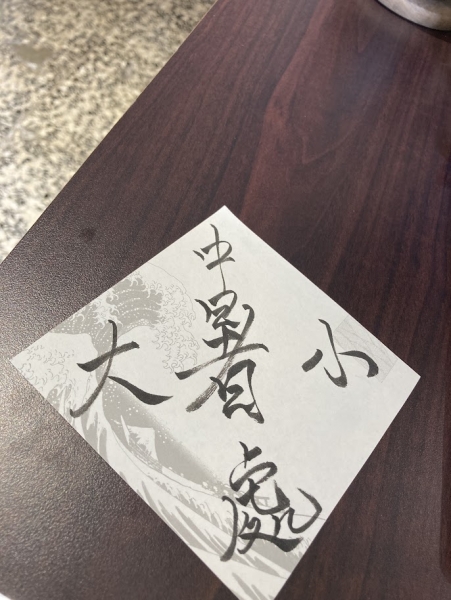 中
大暑小
處